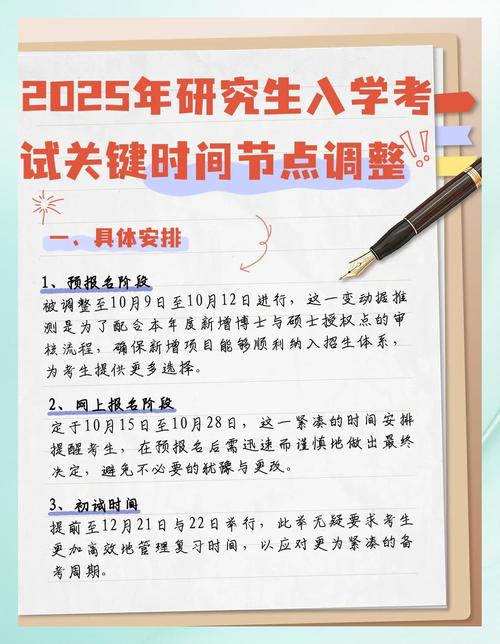 2025年研究生入学考
试关键时间节点调整!!
一、具体安排
1、预报名阶段
被调整至10月9日至10月12日进行，这一变动据推
测是为了配合本年度新增博士与硕士授权点的审
核流程，确保新增项目能够顺利纳入招生体系，
为考生提供更多选择。
2、网上报名阶段
定于10月15日至10月28日，这一紧凑的时间安排
提醒考生，在预报名后需迅速而谨慎地做出最终
决定，避免不必要的犹豫与更改。
3、初试时间
提前至12月21日与22日举行，此举无疑要求考生
更加高效地管理复习时间，以应对更为紧凑的备
考周期。